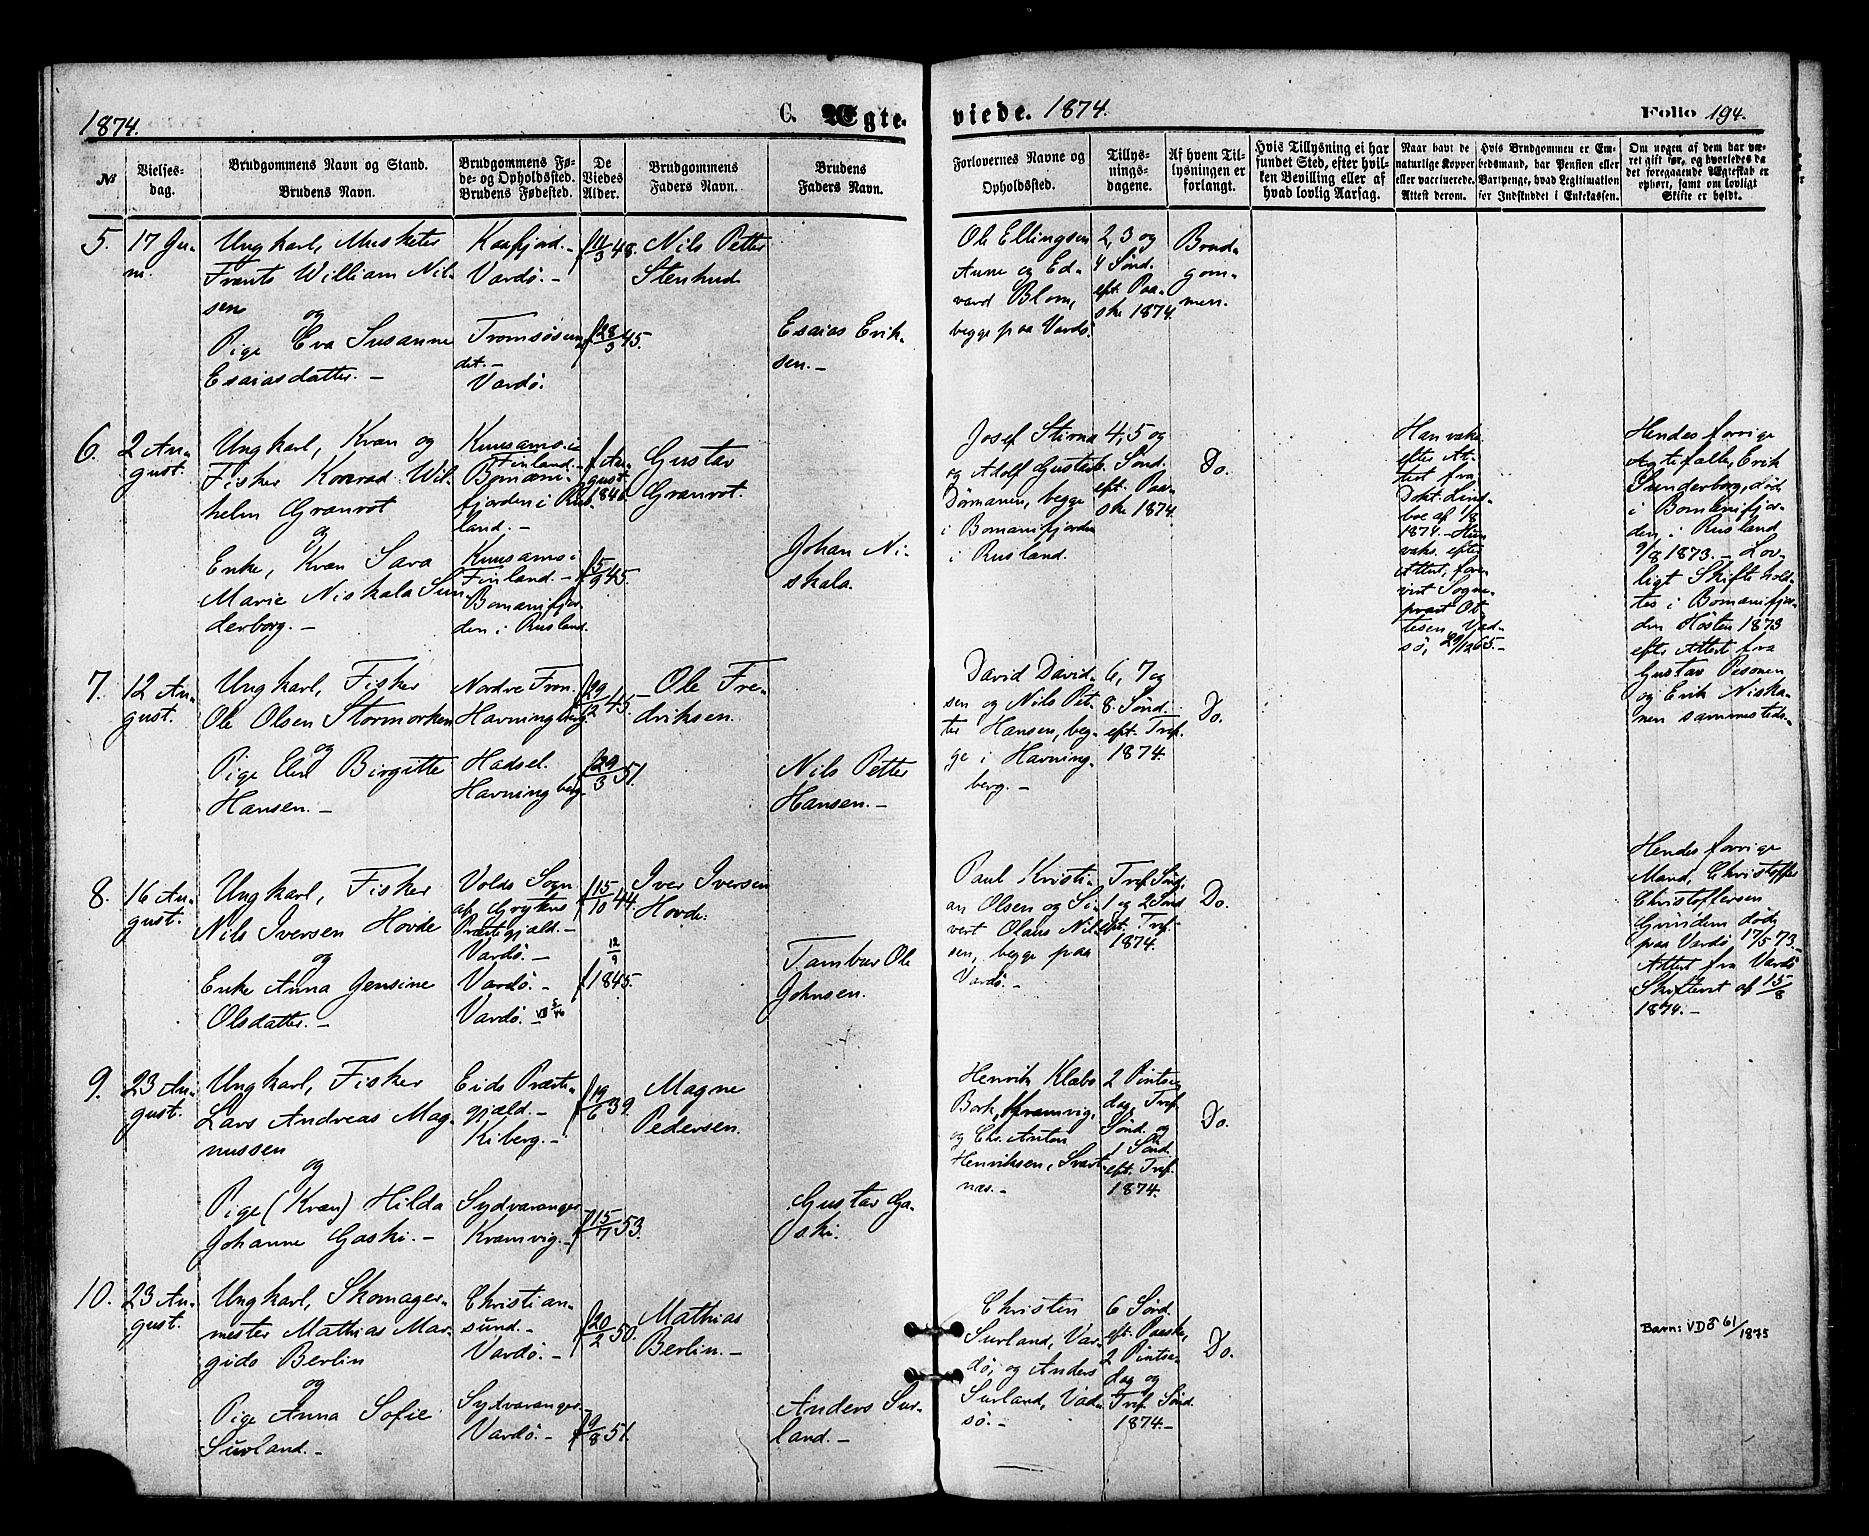 1874.
C. Ægte-
viede. 1874.
Folio 194.
№
Vielses-
dag.
Brudgommens Navn og Stand.
Brudens Navn.
Brudgommens Fø-
de- og Opholdssted.
Brudens Fødested.
De
Viedes
Alder.
Brudgommens
Faders Navn.
Brudens
Faders Navn.
Forlovernes Navne og
Opholdssted.
Tillys-
nings-
dagene.
Af hvem Til-
lysningen er
forlangt.
Hvis Tillysning ei har
fundet Sted, efter hvil-
ken Bevilling eller af
hvad lovlig Aarsag.
Naar havt de
naturlige Kopper
eller vaccinerede.
Attest derom.
Hvis Brudgommen er Em-
bedsmand, har Pension eller
Vartpenge, hvad Legitimation
for Indskuddet i Enkekassen.
Om nogen af dem har væ-
ret gift før, og hvorledes da
det foregaaende Ægteskab er
ophørt, samt om lovligt
Skifte er holdt.
5.
17 Ju-
ni.
Ungkarl, Musketer
Frants William Nil-
sen
og
Pige Eva Susanne
Esaiasdatter. -
Kaafjord. -
Vardö. -
Tromsösun-
det. -
Vardö.
f 11/3 48.
f 28/3 45.
Nils Petter
Stenhud
Esaias Erik-
sen. -
Ole Ellingsen
Aune og Ed-
vard Blom,
begge paa Vardö
2, 3 og
4 Sönd.
eft. Paa-
ske 1874.
Brud-
gom-
men.
6.
2 Au-
gust.
Ungkarl, Kvæn og
Fisker Konrad Wil-
helm Granrot
og
Enke, Kvæn Sara
Marie Niskala Sun-
derborg. -
Kuusamo i
Finland. -
Bomæni-
fjorden i Rus-
land. -
Kuusamo i
Finland. -
Bomanifjor-
den i Rusland.
f Au-
gust
1846.
f 15/9 45.
Gustav
Granrot.
Johan Ni-
skala.
Josef Stirna
og Adolf Gustav
Dörmanen, begge
i Bomanifjorden
i Rusland.
4, 5 og
6. Sönd.
eft. Paa-
ske 1874.
Do.
Han vaks.
efter At-
test fra
Dokt. Lind-
boe af 1/8
1874. - Hun
vaks. efter
Attest, fore-
vist Sogne-
præst Ot-
tesen, Vad-
sö, 29/12 65. -
Hendes forrige
Ægtefælle, Erik
Sunderborg, död
i Bomanifjor-
den i Rusland
9/8 1873. - Lov-
ligt Skifte hold-
tes i Bomanifjor-
den Hösten 1873
efter Attest fra
Gustav Pesonen
og Erik Niska-
nen sammesteds. -
7.
12 Au-
gust.
Ungkarl, Fisker
Ole Olsen Stormorken
og
Pige Elen Birgitte
Hansen. -
Nordre Fron
Havningberg.
Hadsel.
Havningberg.
f 29/12 45.
f 29/3 51.
Ole Fre-
driksen.
Nils Petter
Hansen. -
David David-
sen og Nils Pet-
ter Hansen, beg-
ge i Havning-
berg. -
6, 7 og
8. Sönd.
eft. Tref.
1874.
Do.
8.
16 Au-
gust.
Ungkarl, Fisker
Nils Iversen Hovde
og
Enke Anna Jensine
Olsdatter. -
Volds Sogn
af Grytens
Præstegjæld. -
Vardö. -
Vardö. -
Vardö. -
f 15/10 44.
12/9
f 1845.
Iver Iversen
Hovde.
Tambur Ole
Johnsen.
Paul Kristi-
an Olsen og Si-
vert Olaus Nil-
sen, begge paa
Vardö. -
Tref. Sönd.
1 og 2 Sönd
eft. Tref.
1874.
Do.
Hendes forrige
Mand, Christoffer
Christoffersen
Grindem döde
paa Vardö 17/5 73. -
Attest fra Vardö
Skifteret af 15/8
1874. -
9.
23 Au-
gust.
Ungkarl, Fisker
Lars Andreas Mag-
nussen
og
Pige (Kvæn) Hilda
Johanne Gaski. -
Eids Præste-
gjæld. -
Kiberg. -
Sydvaranger
Kramvig. -
f 19/6 39.
f 15/7 53.
Magne
Pedersen.
Gustav Ga-
ski.
Henrik Klæbo
Bork, Kramvig,
og Chr. Anton
Henriksen, Svart-
næs. -
2 Pintse-
dag, Tref.
Sönd. og
1 Sönd.
eft. Tref.
1874.
Do.
10.
23 Au-
gust.
Ungkarl, Skomager-
mester Mathias Mar-
gido Berlin
og
Pige Anna Sofie
Surland. -
Christian-
sund. -
Vardö. -
Sydvaranger
Vardö. -
f 20/2 50.
f 9/8 51.
Mathias
Berlin. -
Anders Sur-
land. -
Christen
Surland, Var-
dö, og Anders
Surland, Vad-
sö. -
6 Sönd.
eft. Paaske,
2 Pintse-
dag og
Tref. Sönd.
1874. -
Do.
Barn: VDö 61/1875